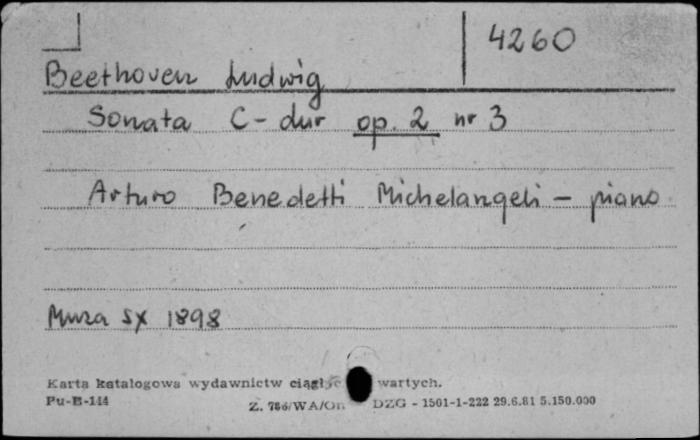 4260
Beethoven Ludwig
Sonata C-dur op. 2 nr 3
Arturo Benedetti Michelangeli - piano
Muza SX 1898
Karta katalogowa wydawnictw ciągł wartych.
Pu-B-144
Z. 786/WA/On DZG - 1501-1-222 29.6.81 5.150.000